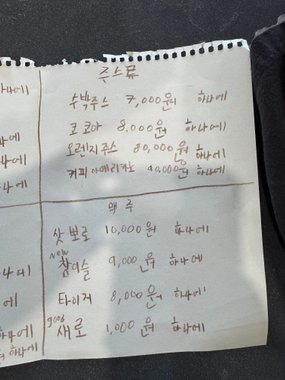 하나에
주스류
수박주스 7,000원 하나에
코코아 8,000원 하나에
오렌지주스 80,000원 하나에
커피 아메리카노 90,000원 하나에
나에
나에
나에
맥주
삿뽀로 10,000원 하나에
new
참이슬 9,000원 하나에
타이거 8,000원 하나에
good
새로 1,000원 하나에
하나에
에
하나에
하나에